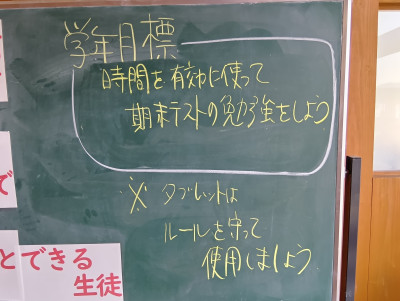 学年目標
時間を有効に使って
期末テストの勉強をしよう
※ タブレットは
ルールを守って
使用しましょう
で
とできる
生徒